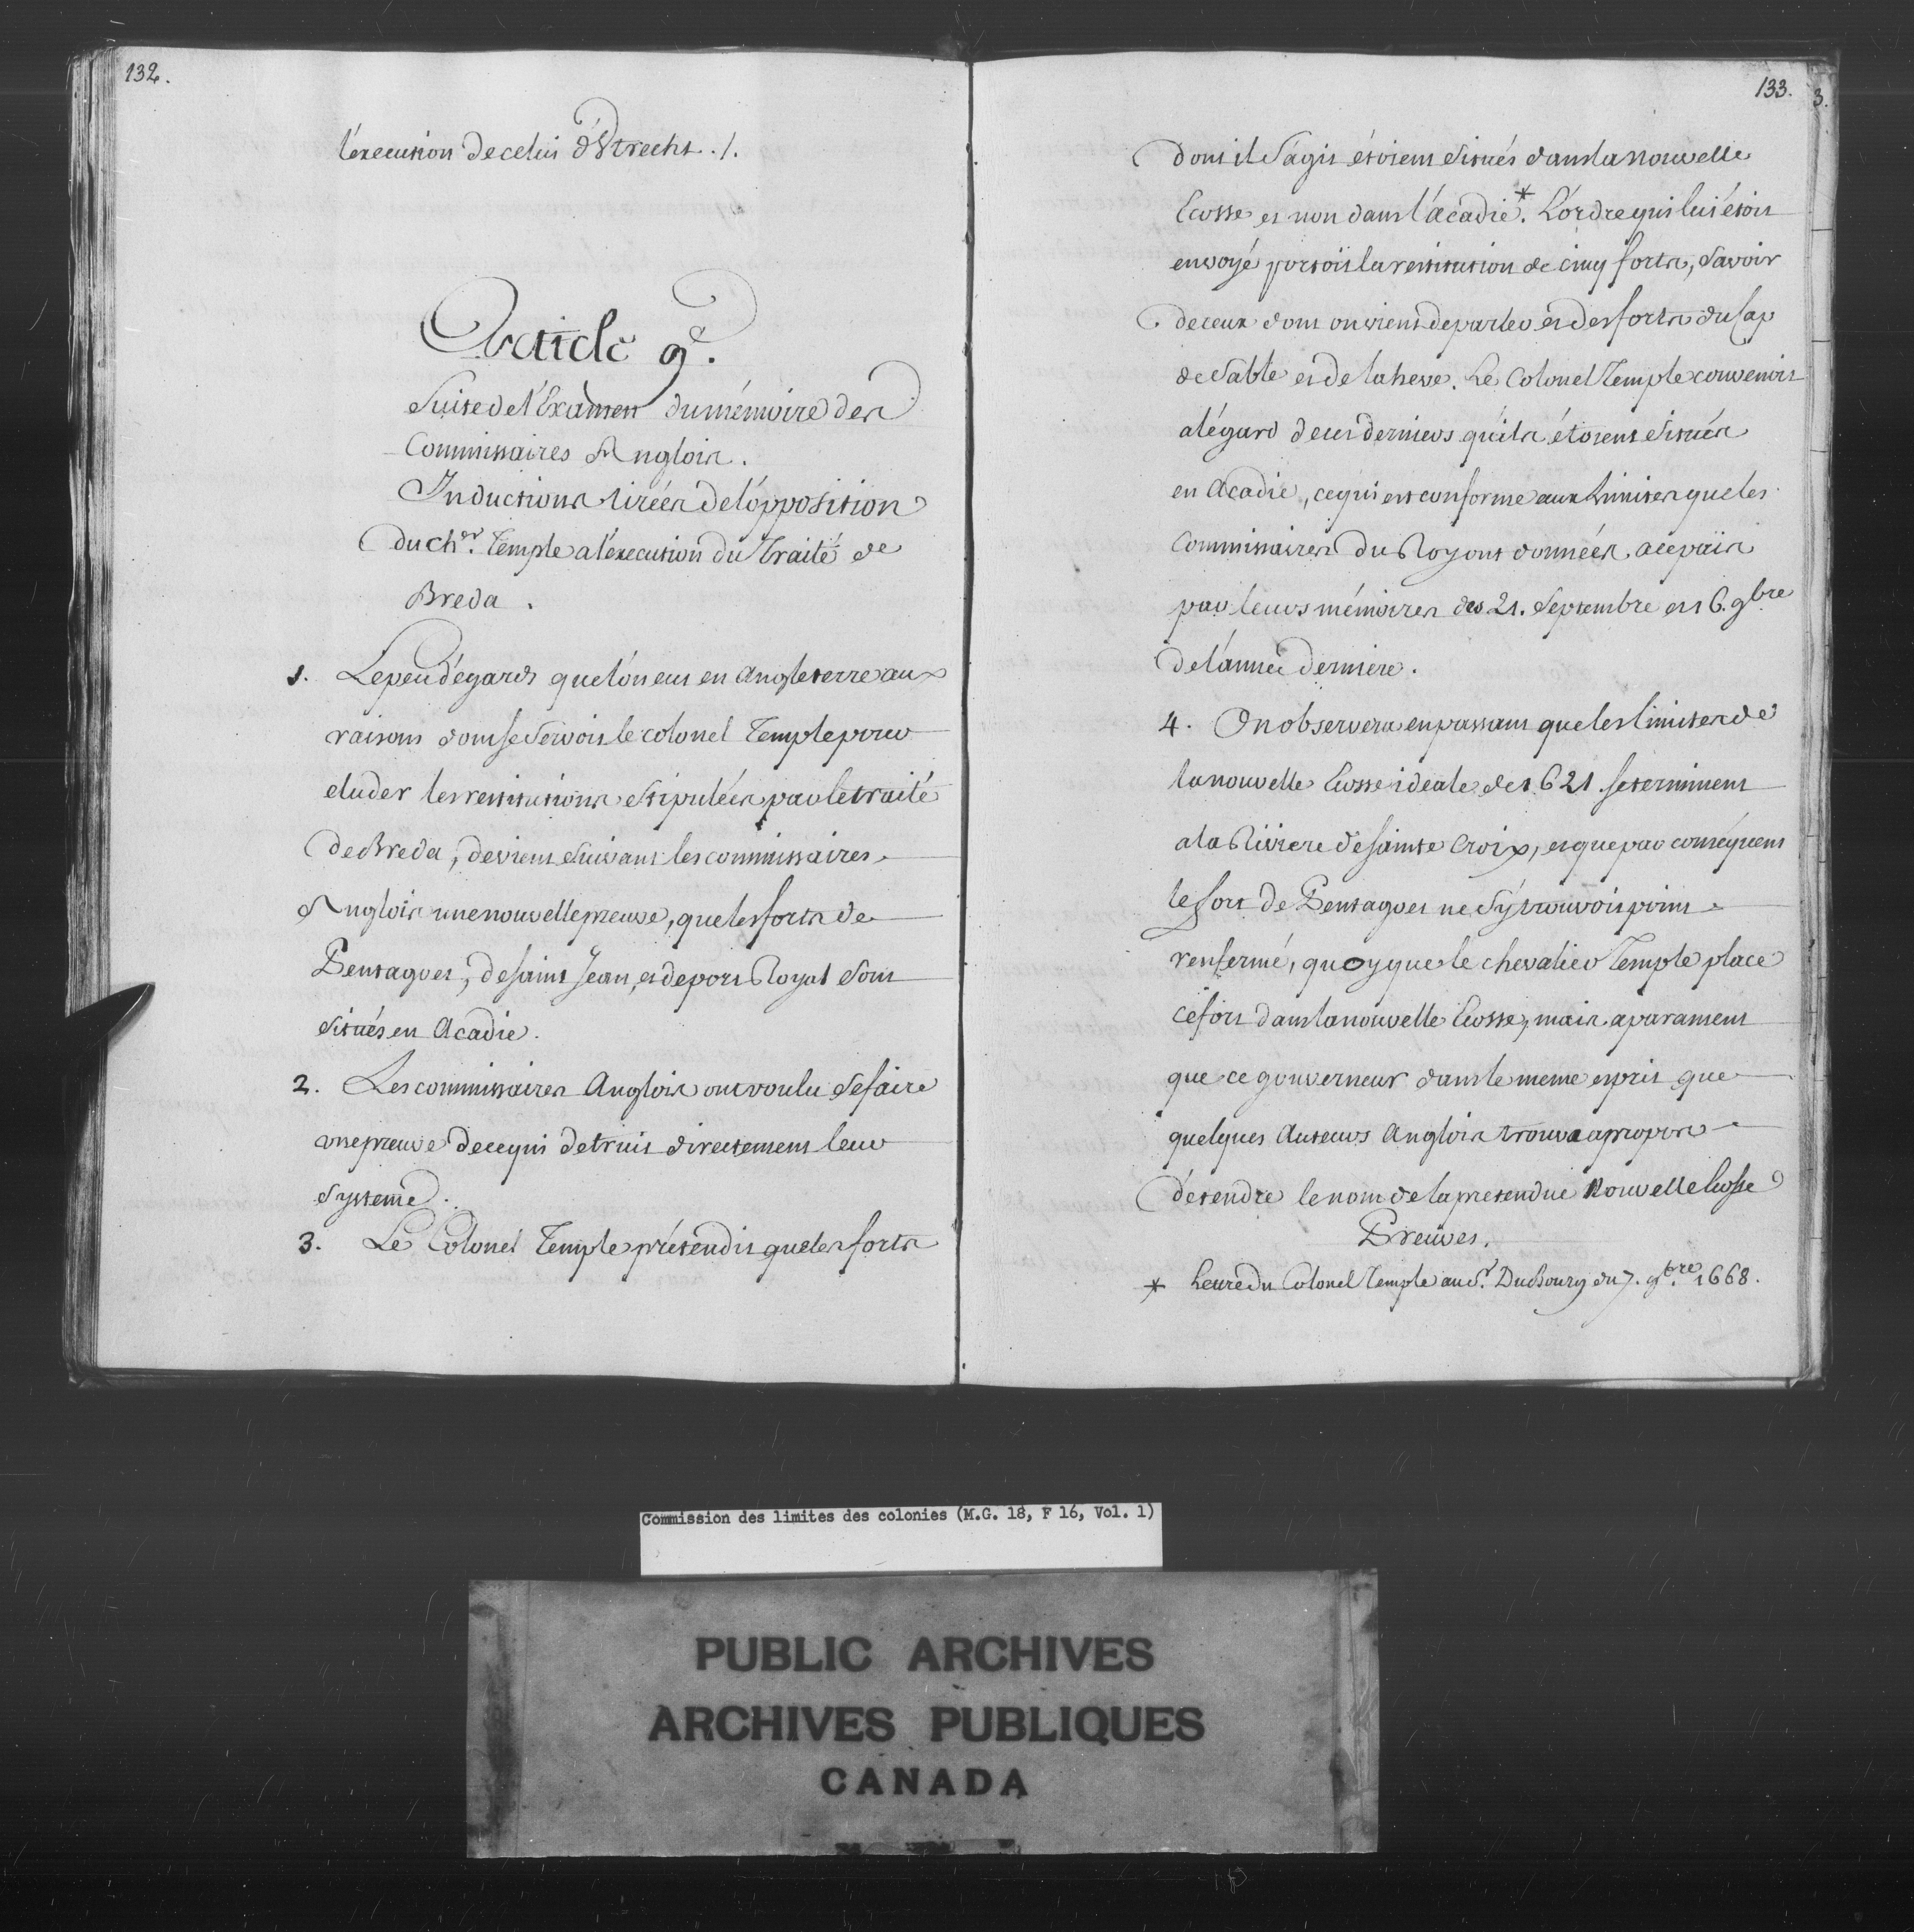 132.
l'execution de celui d'Utrecht ./.
Article 9e.
Suite de l'Examen du mémoire des
Commissaires Anglois.
Inductions tirées de l'opposition
du Cher. Temple a l'execution du Traité de
Breda.
1. Le peu d'égards que l'on eut en Angleterre aux
raisons dont se servoit le colonel Temple pour
eluder les restitutions stipulées par le traité
de Breda, devient suivant les commissaires
Anglois une nouvelle preuve, que les forts de
Pentagoet, de saint Jean, et de port Royal sont
situés en Acadie.
2. Les commissaires Anglois ont voulu se faire
une preuve de ce qui detruit directement leur
systeme.
3. Le Colonel Temple prétendit que les forts
133.
3.
dont il s'agit étoient situés dans la nouvelle
Ecosse et non dans l'acadie*. L'ordre qui lui étoit
envoyé portoit la restitution de cinq forts, savoir
de ceux dont on vient de parler et des forts du Cap
de Sable et de la heve. Le Colonel Temple convenoit
a l'égard de ces derniers qu'ils étoient situés
en Acadie, ce qui est conforme aux Limites que les
Commissaires du Roy ont données a ce païs
par leurs mémoires des 21. Septembre et 16. 9bre
de l'année derniere.
4. On observera en passant que les limites de
la nouvelle Ecosse ideale de 1621 se terminent
a la Riviere de sainte Croix, et que par conséquent
le fort de Pentagoet ne s'y trouvoit point
renfermé, quoy que le chevalier Temple place
ce fort dans la nouvelle Ecosse, mais aparament
que ce gouverneur dans le meme esprit que
quelques Auteurs Anglois trouva a propos
d'etendre le nom de la pretendue Nouvelle Ecosse
Preuves.
* Lettre du Colonel Temple au Sr. DuBourg du 7. 9bre. 1668.
Commission des limites des colonies (M.G. 18, F 16, Vol. 1)
PUBLIC ARCHIVES
ARCHIVES PUBLIQUES
CANADA